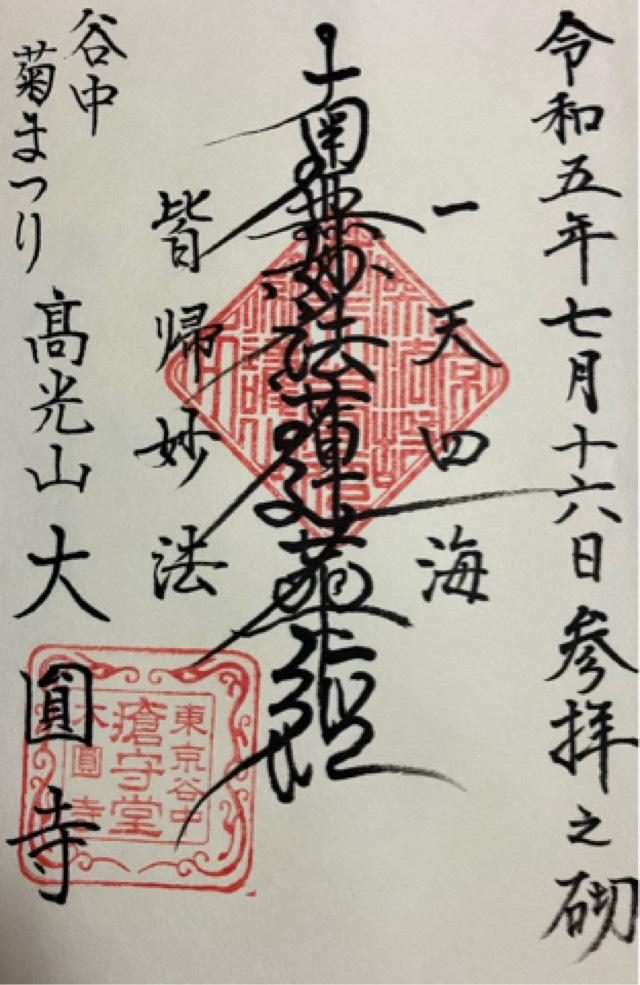 令和五年七月十六日参拝之砌
一天四海
南無妙法蓮華経
皆帰妙法
谷中
菊まつり
髙光山大圓寺
東京谷中
瘡守堂
大圓寺